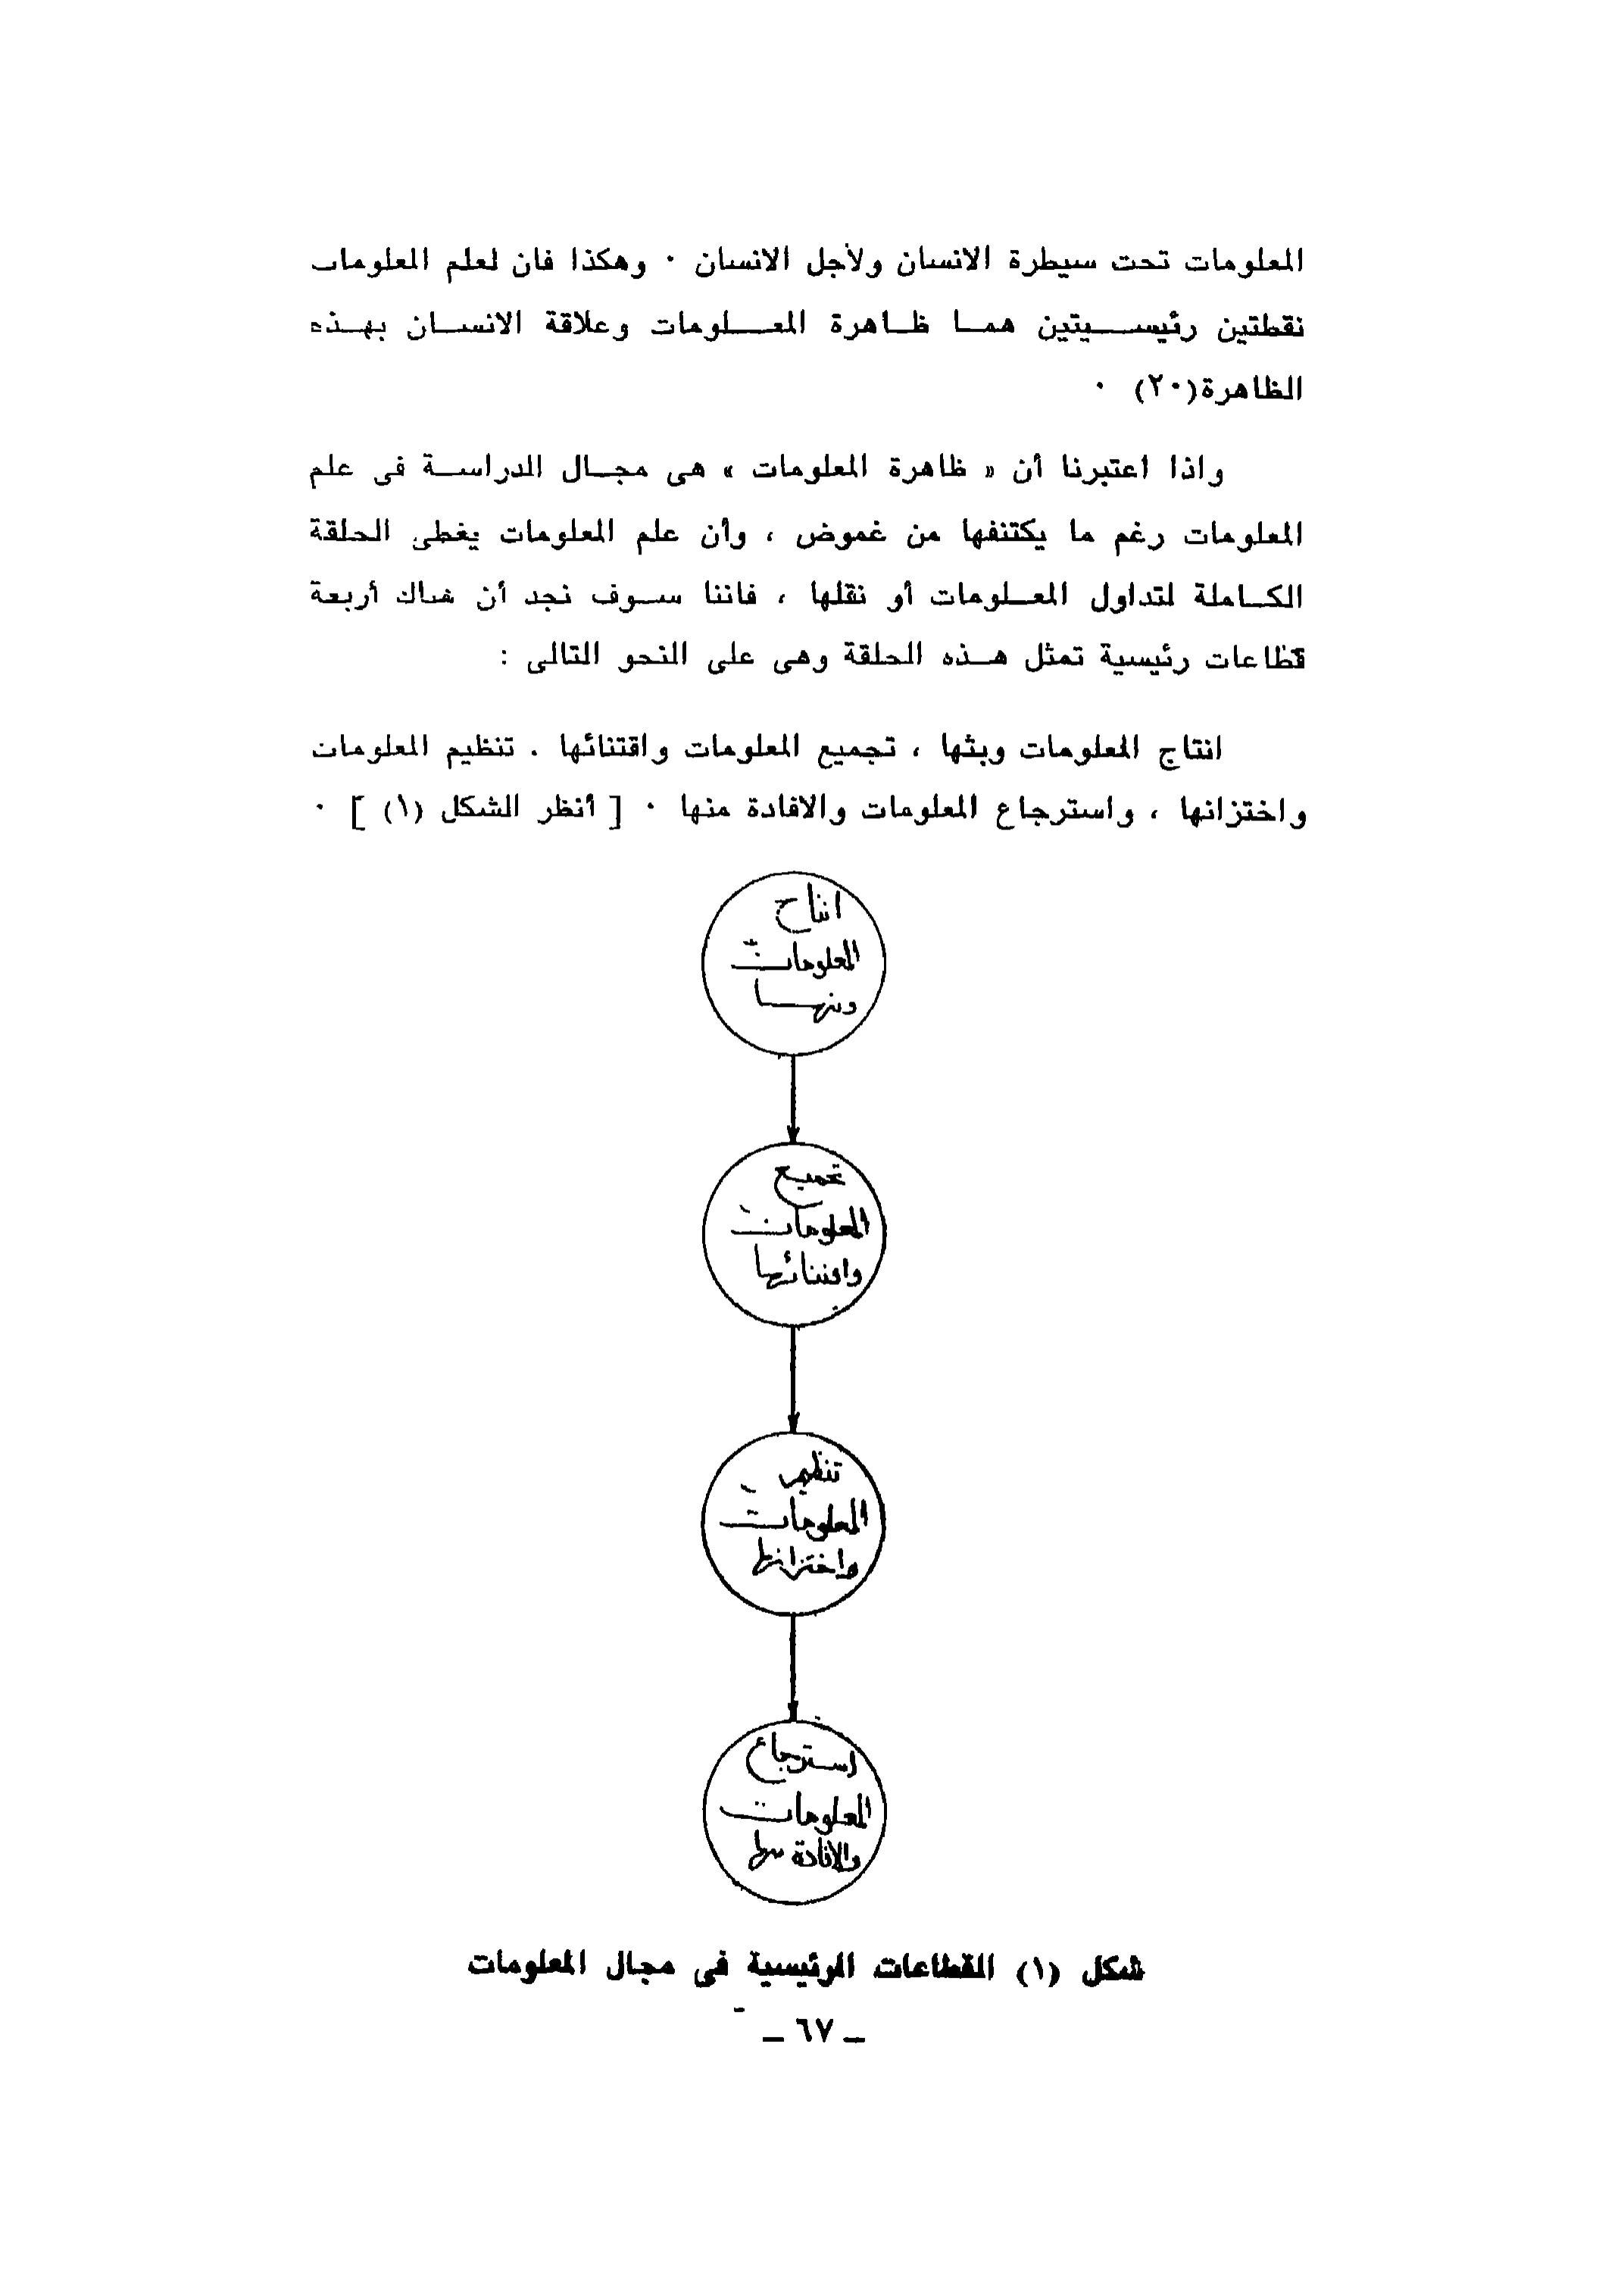 المعلومات تحت سيطرة الانسان ولأجل الانسان ٠ وهكذا فان لعلم المعلومات
نقطتين رئيســيتين همـا ظـاهرة المعــلومات وعلاقة الانســان بهـذه
الظاهرة(٢٠) ٠
واذا اعتبرنا أن « ظاهرة المعلومات » هى مجـال الدراسـة فى علم
المعلومات رغم ما يكتنفها من غموض ، وأن علم المعلومات يغطى الحلقة
الكـاملة لتداول المعـلومات أو نقلها ، فاننا سـوف نجد أن هناك أربعة
قطاعات رئيسية تمثل هـذه الحلقة وهى على النحو التالى :
انتاج المعلومات وبثها ، تجميع المعلومات واقتنائها . تنظيم المعلومات
واختزانها ، واسترجاع المعلومات والافادة منها ٠ [ أنظر الشكل (١) ] ٠
انتاج
المعلومات
وبثها
تجميع
المعلومات
واقتنائها
تنظيم
المعلومات
واختزانها
استرجاع
المعلومات
والافادة منها
شكل (١) القطاعات الرئيسية فى مجال المعلومات
ـ ٦٧ ـ